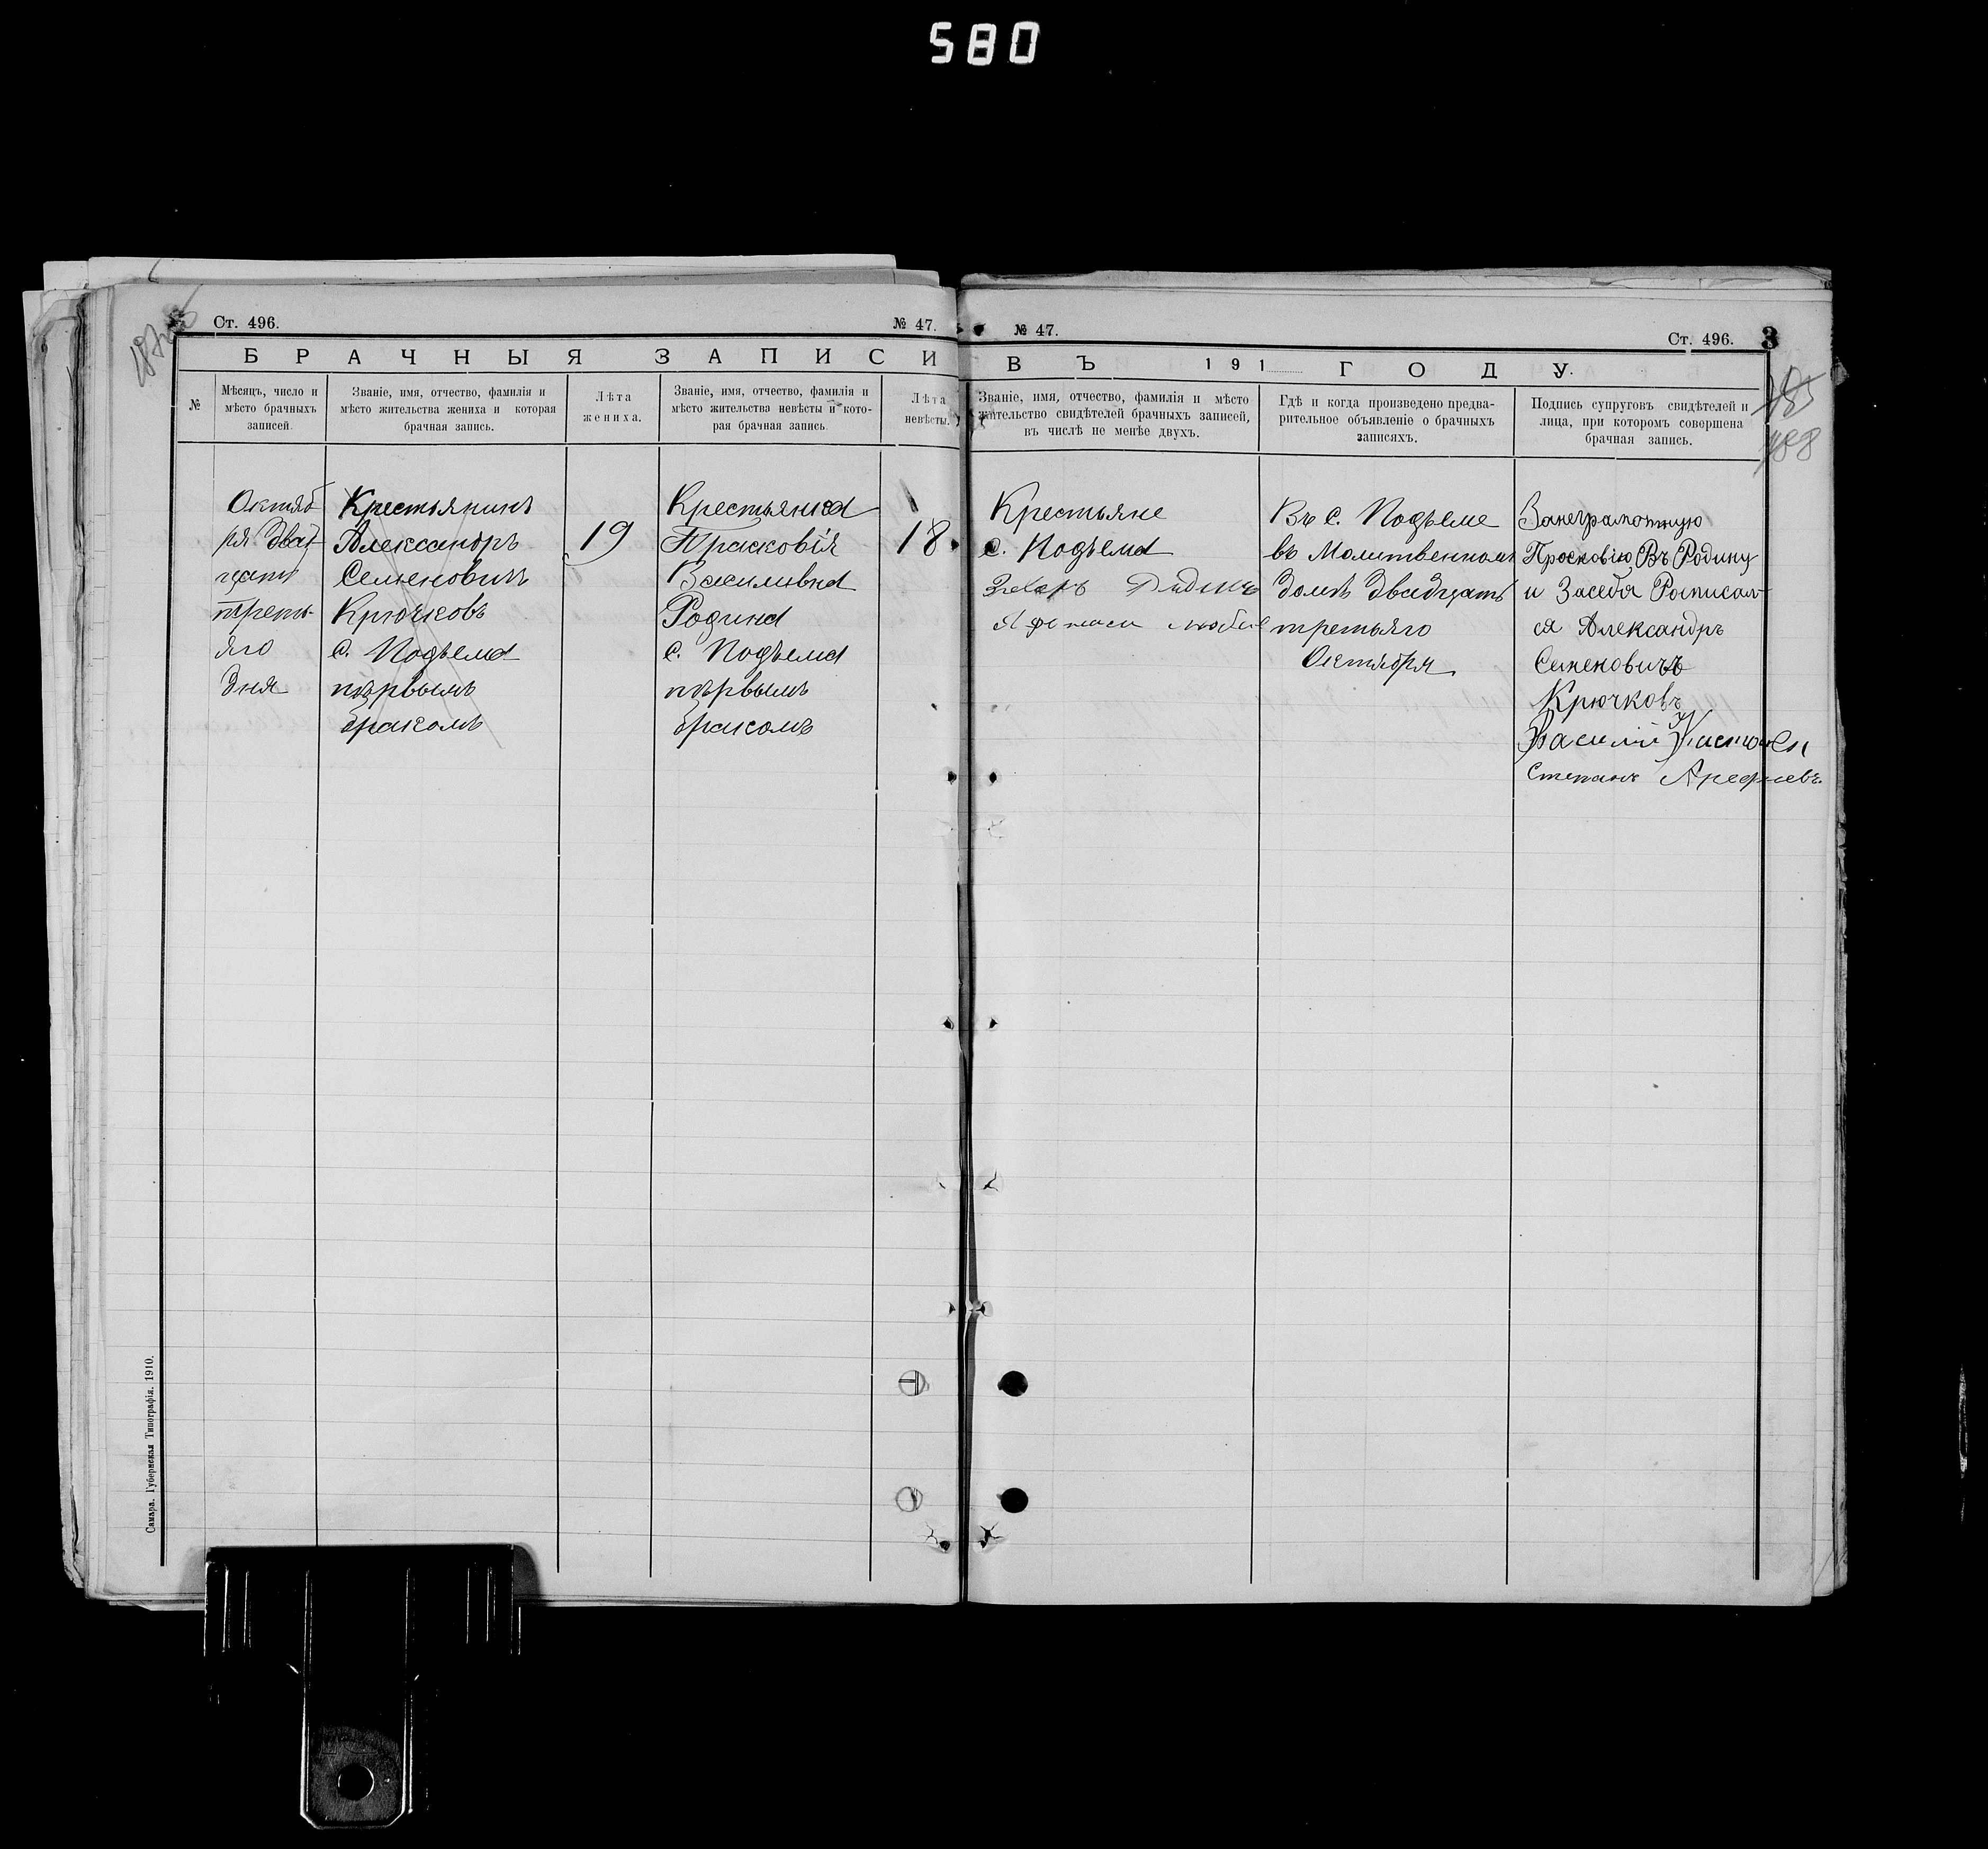 580
Ст. 496.
№ 47.
БРАЧНЫЯ ЗАПИСИ
№
Мѣсяцъ, число и
мѣсто брачныхъ
записей.
Званіе, имя, отчество, фамилія и
мѣсто жительства жениха и которая
брачная запись.
Лѣта
жениха.
Званіе, имя, отчество, фамилія и
мѣсто жительства невѣсты и кото-
рая брачная запись.
Лѣта
невѣсты.
Октяб
ря двад
цать
треть-
яго
дня
Крестьянинъ
Александръ
Семеновичъ
Крючковъ
с. Подъема
первымъ
бракомъ
19
Крестьянка
Прасковія
Василивна
Родина
с. Подъема
первымъ
бракомъ
18
Самара. Губернская Типографія. 1910.
№ 47.
Ст. 496.
3
ВЪ 191 ГОДУ.
Званіе, имя, отчество, фамилія и мѣсто
жительство свидѣтелей брачныхъ записей,
въ числѣ не менѣе двухъ.
Гдѣ и когда произведено предва-
рительное объявленіе о брачныхъ
записяхъ.
Подпись супруговъ свидѣтелей и
лица, при которомъ совершена
брачная запись.
185
188
Крестьяне
с. Подъема
Захаръ
Въ с. Подъеме
въ Молитвенномъ
Доме двадцать
третьяго
Октября
Занеграмотную
Просковію Въ Родину
и Засебя Росписал-
ся Александръ
Семеновичъ
Крючковъ
Василий
Степанъ Арефиевъ